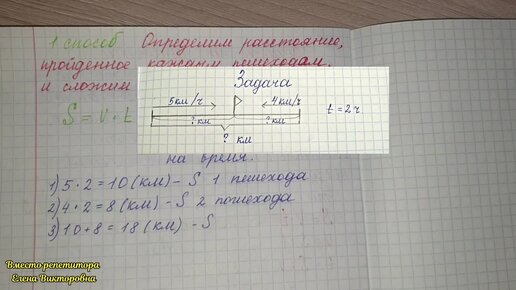 1 способ. Определим расстояние,
пройденное каждым пешеходам.
и сложим
S = v · t
Задача
5км/ч 4км/ч
t = 2ч
? км ? км
? км
на время.
1) 5 · 2 = 10 (км) - S 1 пешехода
2) 4 · 2 = 8 (км) - S 2 пешехода
3) 10 + 8 = 18 (км) - S
Вместо репетитора
Елена Викторовна